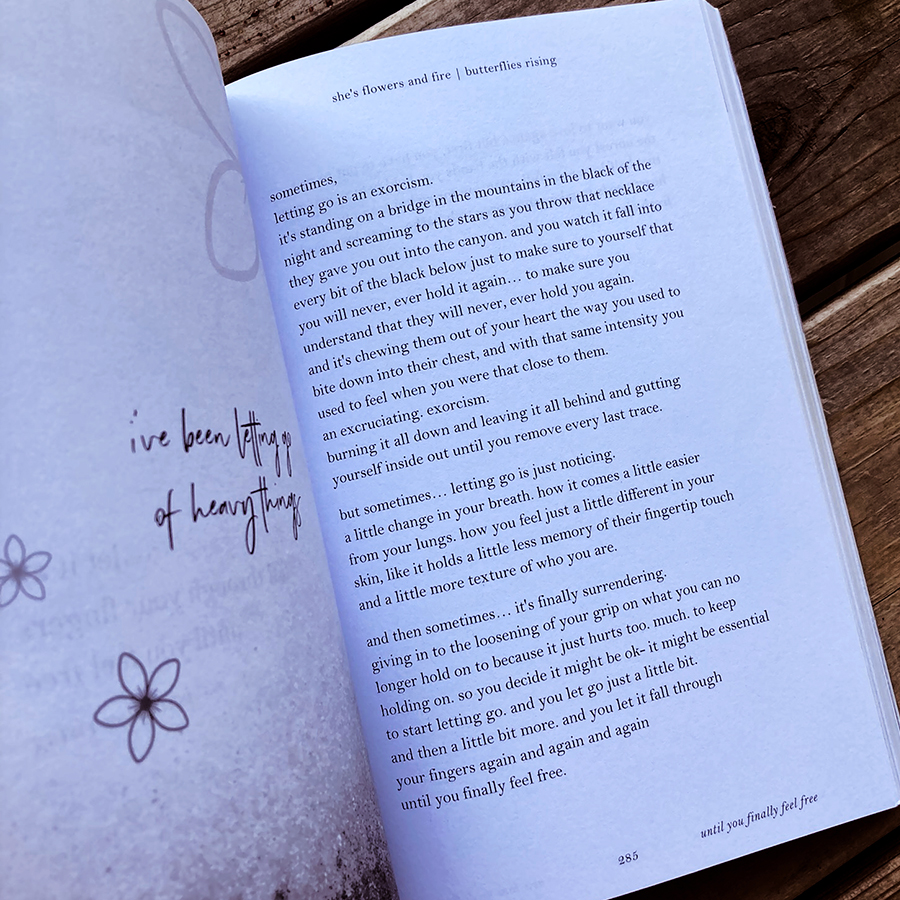 i've been letting go
of heavy things
she's flowers and fire | butterflies rising
sometimes,
letting go is an exorcism.
it's standing on a bridge in the mountains in the black of the
night and screaming to the stars as you throw that necklace
they gave you out into the canyon. and you watch it fall into
every bit of the black below just to make sure to yourself that
you will never, ever hold it again... to make sure you
understand that they will never, ever hold you again.
and it's chewing them out of your heart the way you used to
bite down into their chest, and with that same intensity you
used to feel when you were that close to them.
an excruciating. exorcism.
burning it all down and leaving it all behind and gutting
yourself inside out until you remove every last trace.
but sometimes... letting go is just noticing.
a little change in your breath. how it comes a little easier
from your lungs. how you feel just a little different in your
skin, like it holds a little less memory of their fingertip touch
and a little more texture of who you are.
and then sometimes... it's finally surrendering.
giving in to the loosening of your grip on what you can no
longer hold on to because it just hurts too. much. to keep
holding on. so you decide it might be ok- it might be essential
to start letting go. and you let go just a little bit.
and then a little bit more. and you let it fall through
your fingers again and again and again
until you finally feel free.
until you finally feel free
285